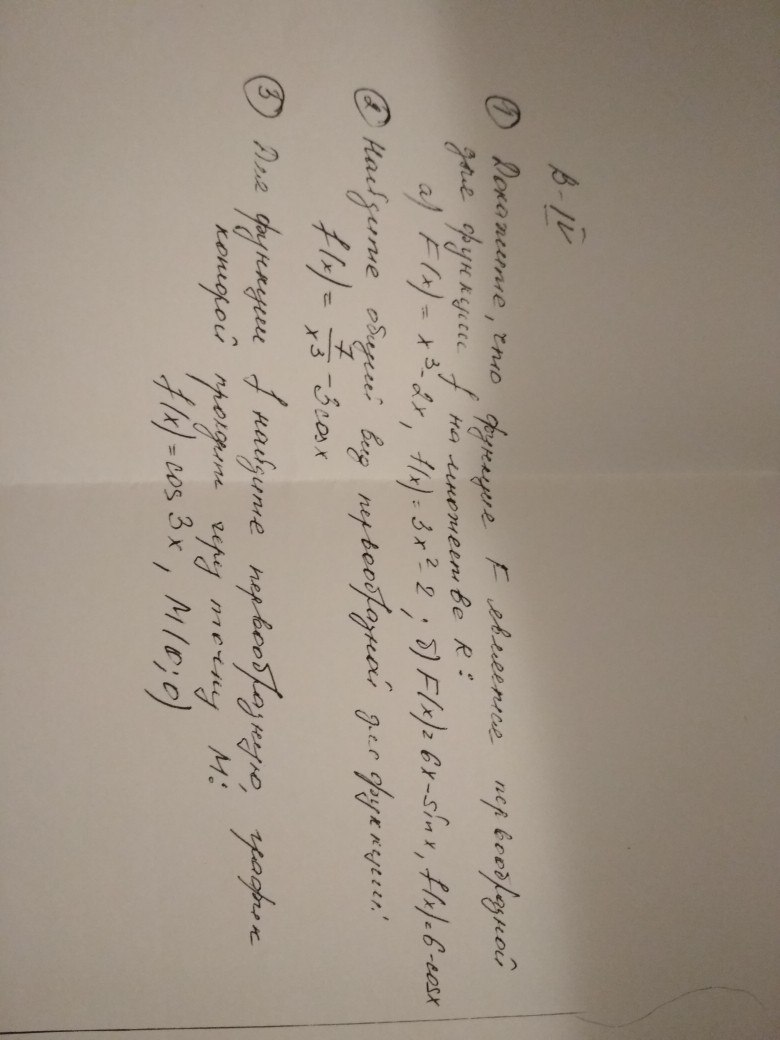 В-IV
① Докажите, что функция F является первообразной
для функции f на множестве R:
а) F(x) = x³-2x, f(x) = 3x²-2; б) F(x) = 6x-sin x, f(x) = 6-cosx
② Найдите общий вид первообразной для функции:
f(x) = 7/x³ - 3cosx
③ Для функции f найдите первообразную, график
которой проходит через точку М:
f(x) = cos 3x, M(0; 0)